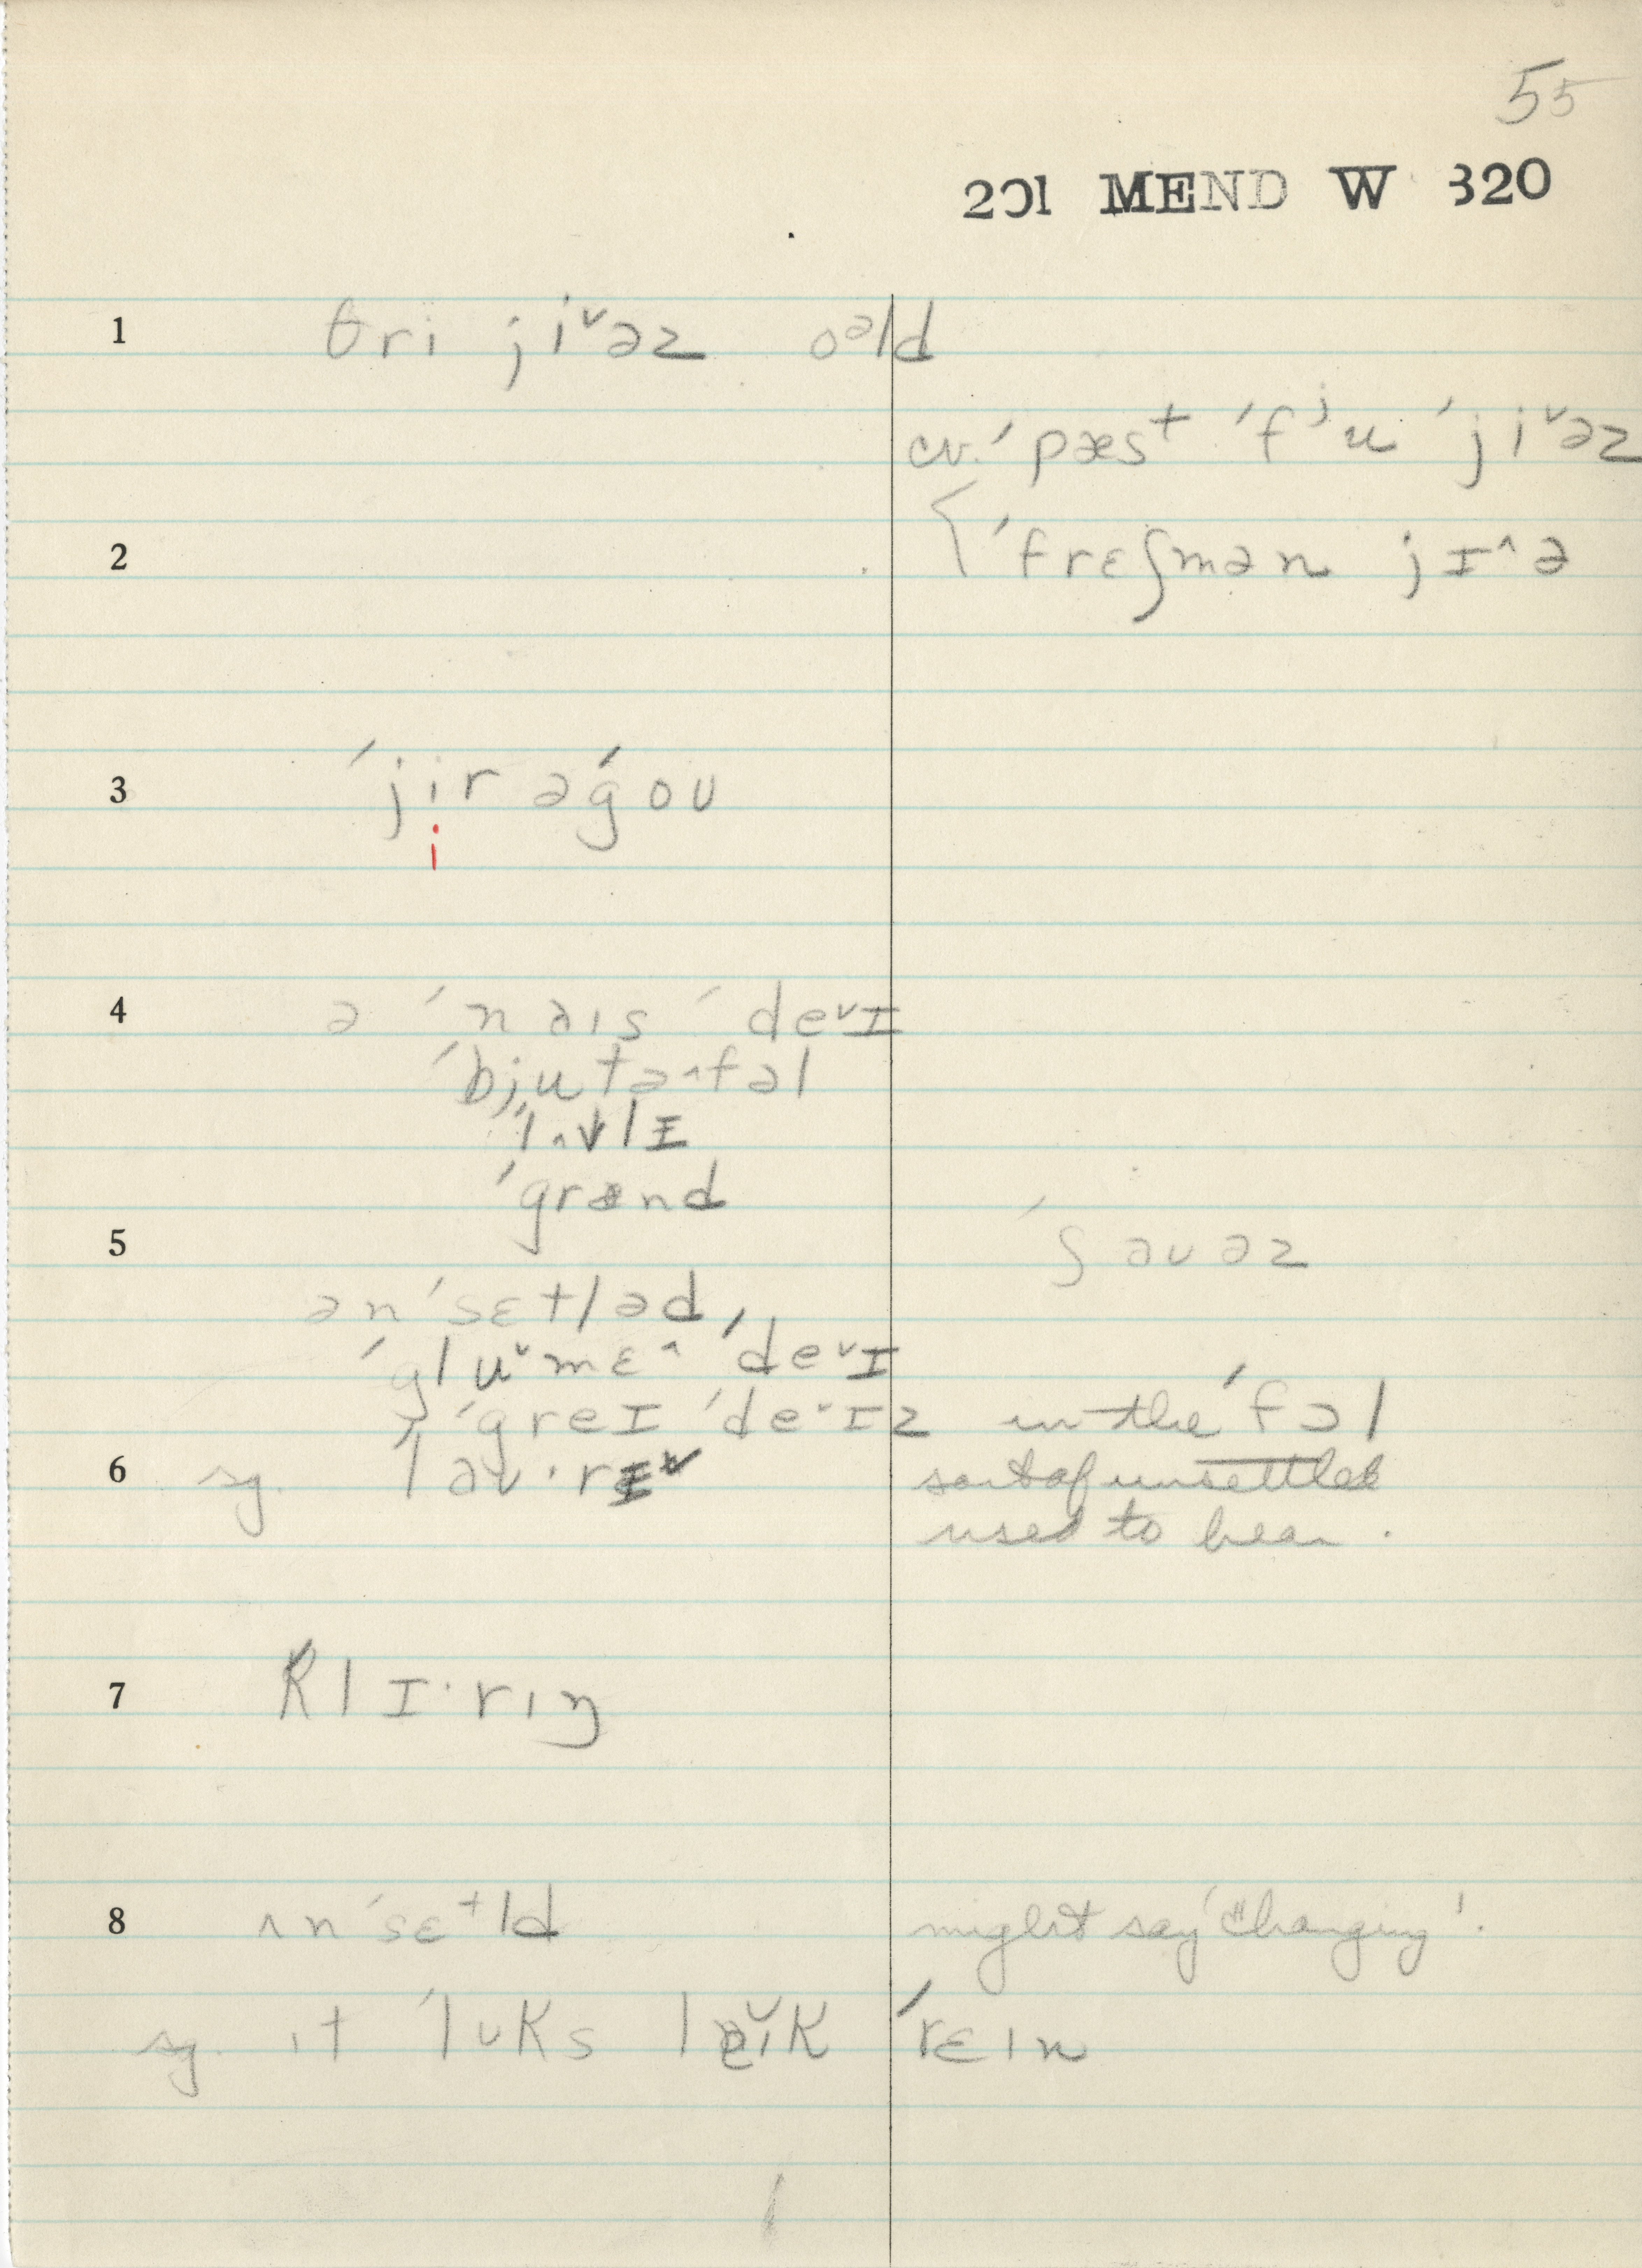 55
201 MEND W 320
1 θri ji˅əz oᵊld
cv. ˈpæst ˈfʲu ˈji˅əz
2 ˈfrɛʃmən jɪ^ə
3 ˈjir əˈgoʊ
i
4 ə ˈnaɪs ˈde˅ɪ
ˈbjutə^fəl
ˈlʌvlɪ
ˈgrænd
5 ˈʃaʊəz
ənˈsɛtləd,
ˈglu˅mɛ^ ˈde˅ɪ
ˈgreɪ ˈde˅ɪz in the ˈfɔl
6 sg. laʊ·rɪ˅ sort of unsettled
used to hear.
7 klɪ·rɪŋ
8 ʌnˈsɛtld might say 'changing'.
sg. ɪt ˈlʊks lɪk ˈrɛɪn